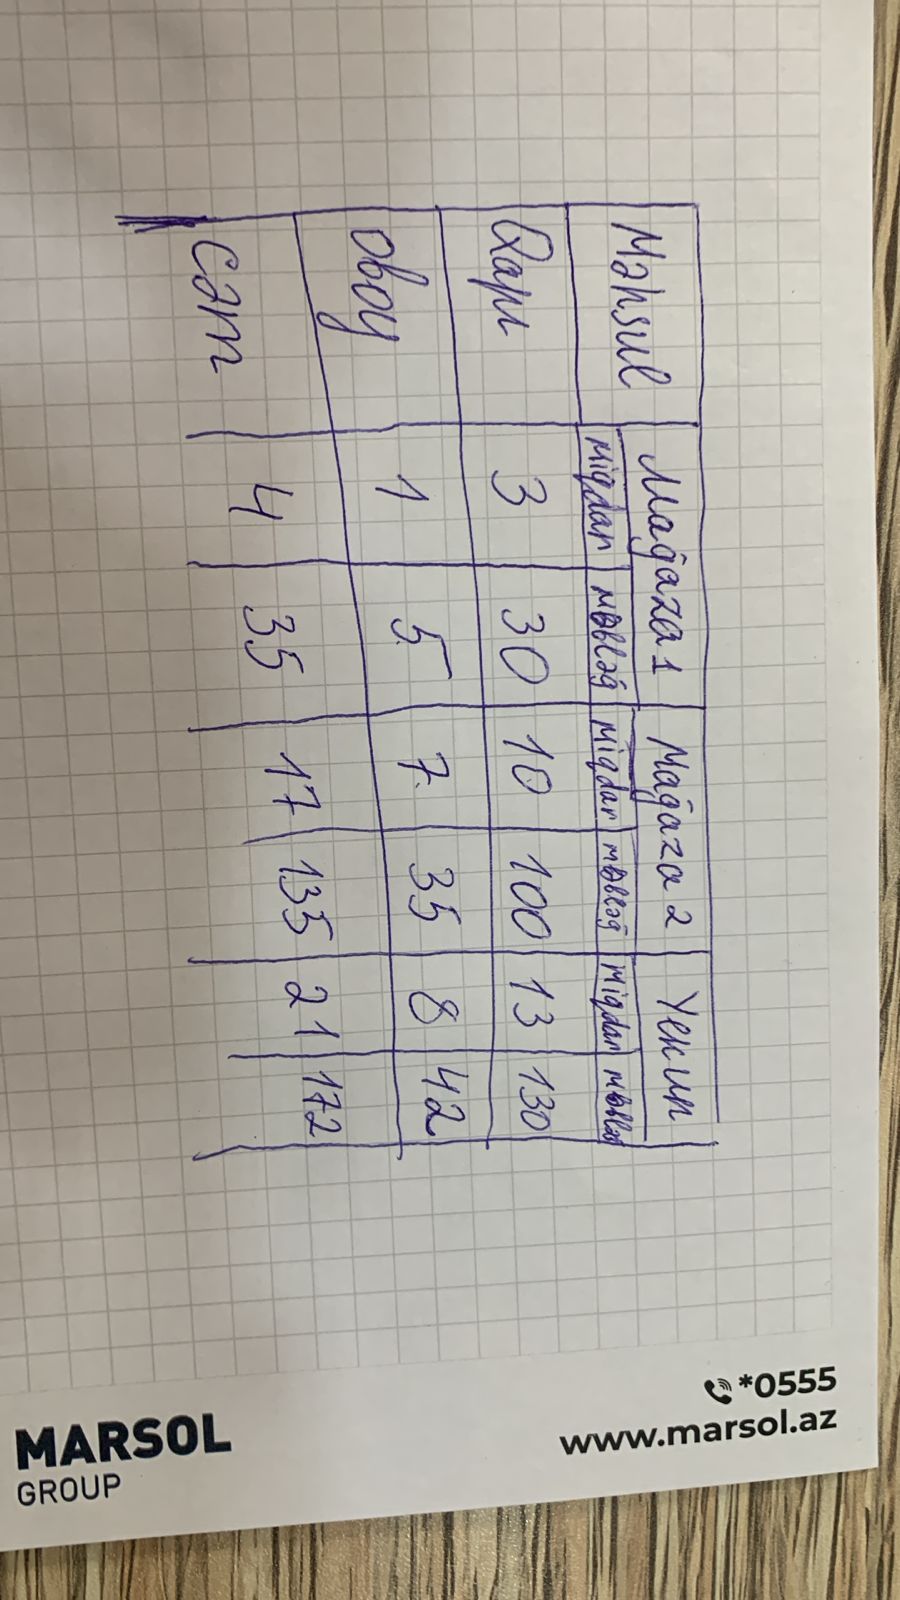 Məhsul Mağaza 1 Mağaza 2 Yekun
miqdar məbləğ miqdar məbləğ miqdar məbləğ
Qapı 3 30 10 100 13 130
Oboy 1 5 7 35 8 42
Cəm 4 35 17 135 21 172
*0555
www.marsol.az
MARSOL
GROUP